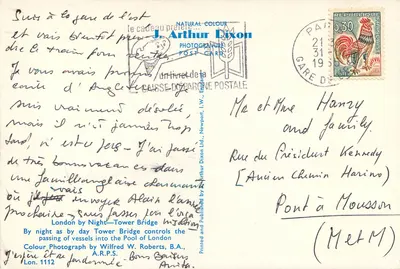 Suis à la gare de l'est
et vais bientôt pren-
dre le train pour
Je vous avais promis
carte d'Angleterre
suis vraiment désolée,
mais il n'est jamais trop
tard, n'est ce pas - J'ai passé
de très bonnes vacances dans
une famille anglaise charmante
vais envoyer Alain l'année
prochaine, sans passer par l'organisation
J'espère
Bons Baisers
Anita
NATURAL COLOUR
J. Arthur Dixon
PHOTOGRAVURE
POST CARD
le cadeau
un livret de la
CAISSE D'EPARGNE POSTALE
PARIS
21
31
GARE DE L'EST
0,30
Printed and Published by J. Arthur Dixon Ltd., Newport, I.W., England
London by Night—Tower Bridge
By night as by day Tower Bridge controls the
passing of vessels into the Pool of London
Colour Photograph by Wilfred W. Roberts, B.A.,
A.R.P.S.
Lon. 1112
Me et Mme Hanzy
and family.
Rue du Président Kennedy
(Ancien Chemin Hariou)
Pont à Mousson
(M et M)